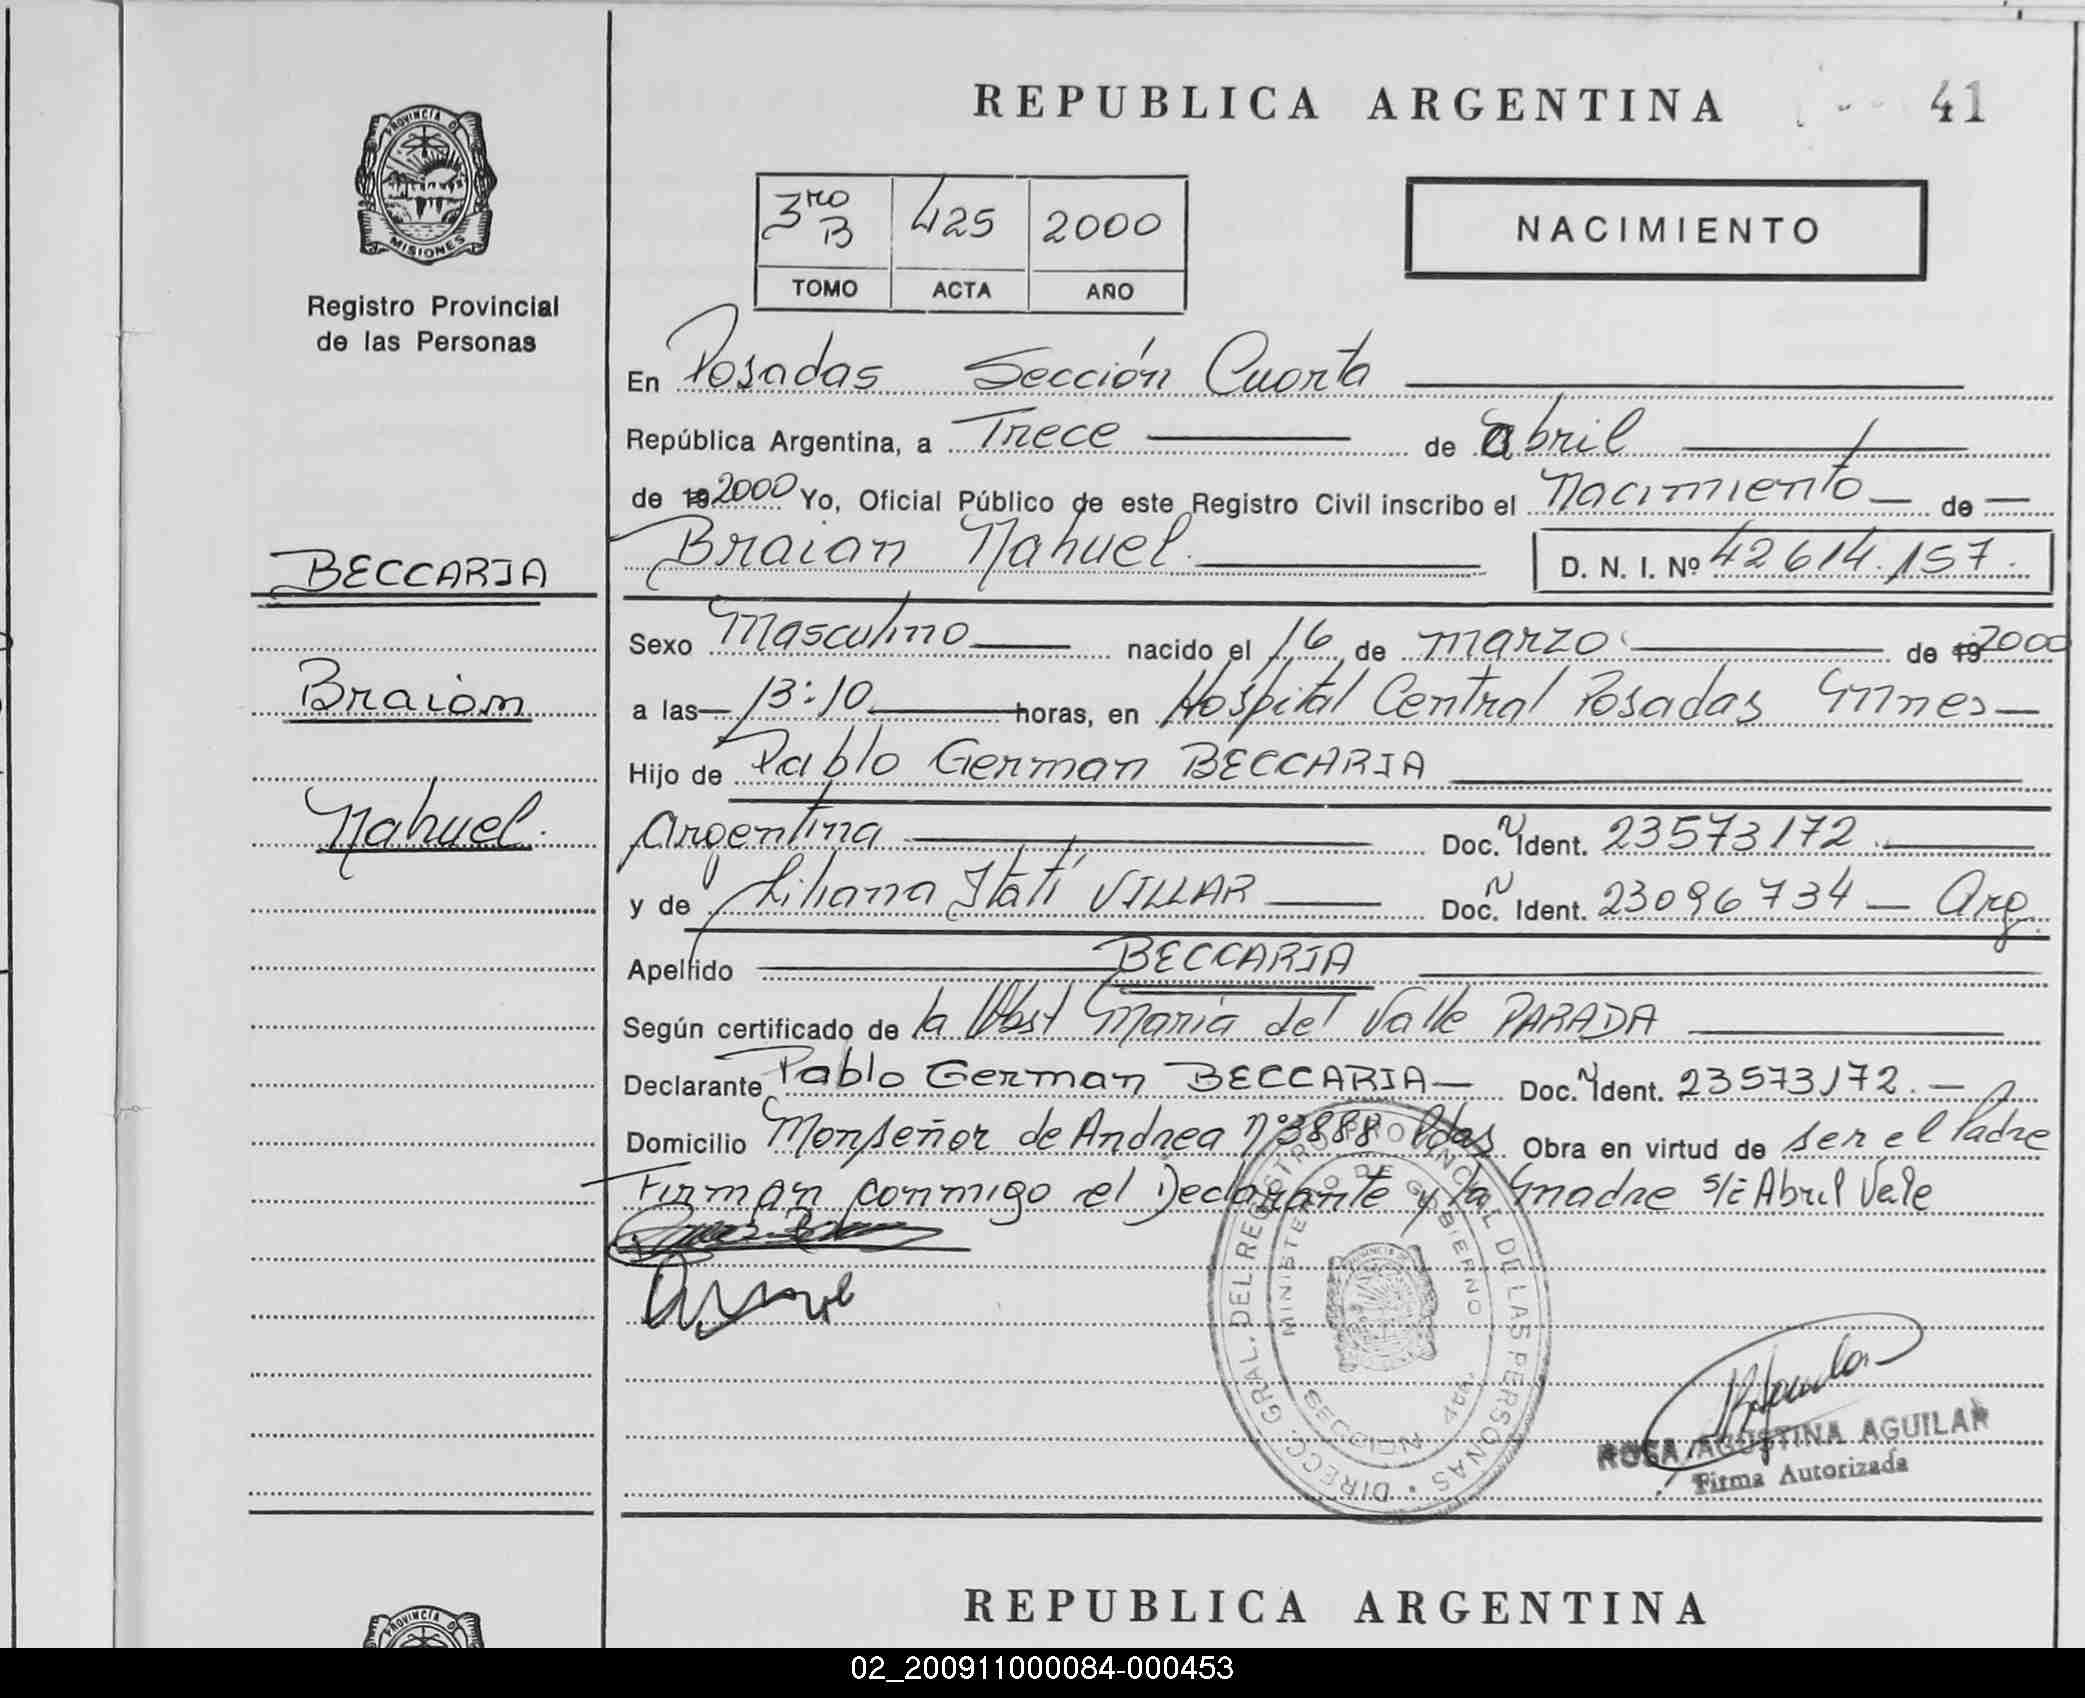 REPUBLICA ARGENTINA
41
PROVINCIA DE
MISIONES
Registro Provincial
de las Personas
3ro B 425 2000
TOMO ACTA AÑO
NACIMIENTO
En Posadas Sección Cuarta
República Argentina, a Trece de abril
de 19 2000 Yo, Oficial Público de este Registro Civil inscribo el Nacimiento de
Braian Nahuel. D. N. I. Nº 42614.157.
BECCARIA
Braian
Nahuel.
Sexo Masculino nacido el 16 de marzo de 19 2000
a las 13:10 horas, en Hospital Central Posadas Mnes
Hijo de Pablo German BECCARIA
Argentina Doc. N Ident. 23573172
y de Liliana Itatí VILLAR Doc. N Ident. 23096734 Arg.
Apellido BECCARIA
Según certificado de la Obst María del Valle PARADA
Declarante Pablo German BECCARIA Doc. N Ident. 23573172.
Domicilio Monseñor de Andrea nº3888 Pdas Obra en virtud de ser el Padre
Firman conmigo el Declarante y la madre S/E Abril Vale
DIRECC. GRAL. DEL REGISTRO PROVINCIAL DE LAS PERSONAS
MINISTERIO DE GOBIERNO
SECCION 4ta
ROSA AGUSTINA AGUILAR
Firma Autorizada
REPUBLICA ARGENTINA
PROVINCIA D
02_200911000084-000453